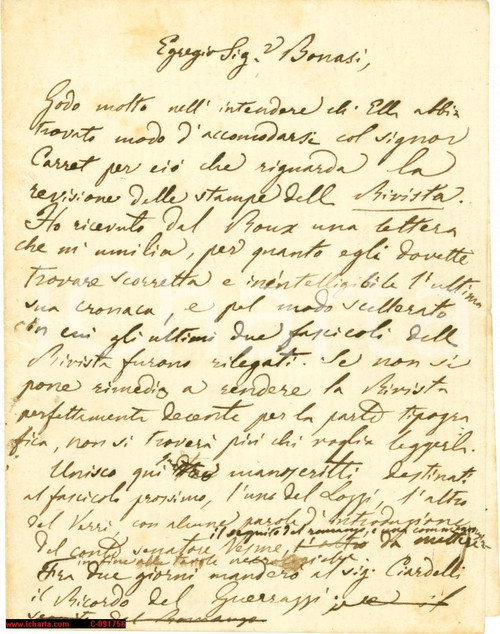 Egregio Sig.r Bonasi,
Godo molto nell' intendere ch' Ella abbia
trovato modo d'accomodarsi col signor
Carret per ciò che riguarda la
revisione delle stampe dell Rivista.
Ho ricevuto dal Roux una lettera
che m' umilia, per quanto egli dovette
trovare scorretta e inintelligibile l'ultima
sua cronaca, e pel modo scellerato
con cui gli ultimi due fascicoli dell
Rivista furono rilegati. Se non si
pone rimedio a rendere la Rivista
perfettamente decente per la parte tipogra
fica, non si troverà più chi voglia leggerla.
Unisco qui manoscritti destinati
al fascicolo prossimo, l'uno del Lozzi, l'altro
del Verri con alcune parole d'introduzione
il seguito del romanzo, e una
del conte senatore Vesme, da mettersi
in fine alle
Fra due giorni manderò al sig. Ciardelli
il Ricordo del Guerrazzi
www.icharta.com C-091756